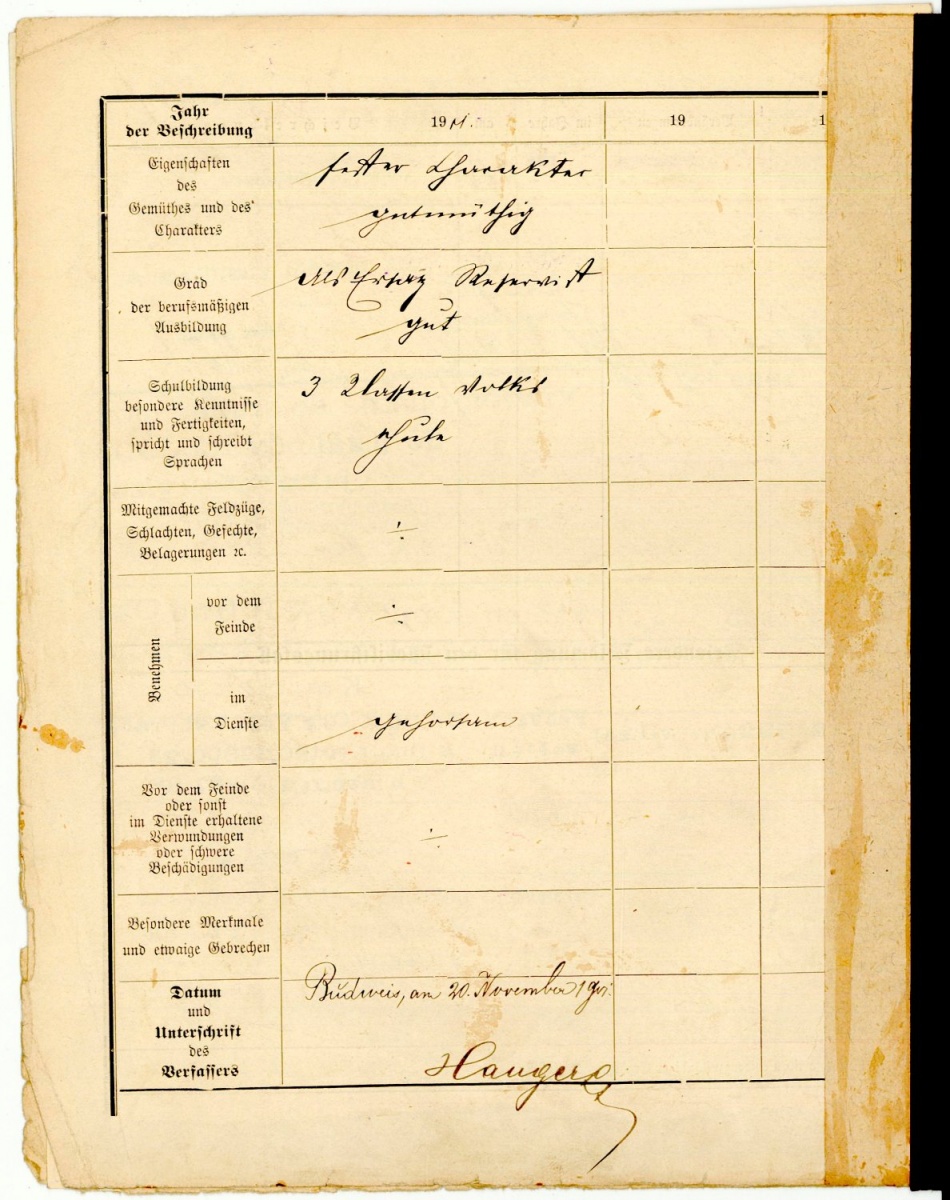 Jahr
der Beschreibung
1901.
19
1
Eigenschaften
des
Gemüthes und des
Charakters
fester Charakter
gutmüthig
Grad
der berufsmäßigen
Ausbildung
Als Ersatz Reservist
gut
Schulbildung
besondere Kenntnisse
und Fertigkeiten,
spricht und schreibt
Sprachen
3 Klassen Volks
schule
Mitgemachte Feldzüge,
Schlachten, Gefechte,
Belagerungen ꝛc.
÷
Benehmen
vor dem
Feinde
÷
im
Dienste
gehorsam
Vor dem Feinde
oder sonst
im Dienste erhaltene
Verwundungen
oder schwere
Beschädigungen
÷
Besondere Merkmale
und etwaige Gebrechen
Datum
und
Unterschrift
des
Verfassers
Budweis, am 20. November 1901.